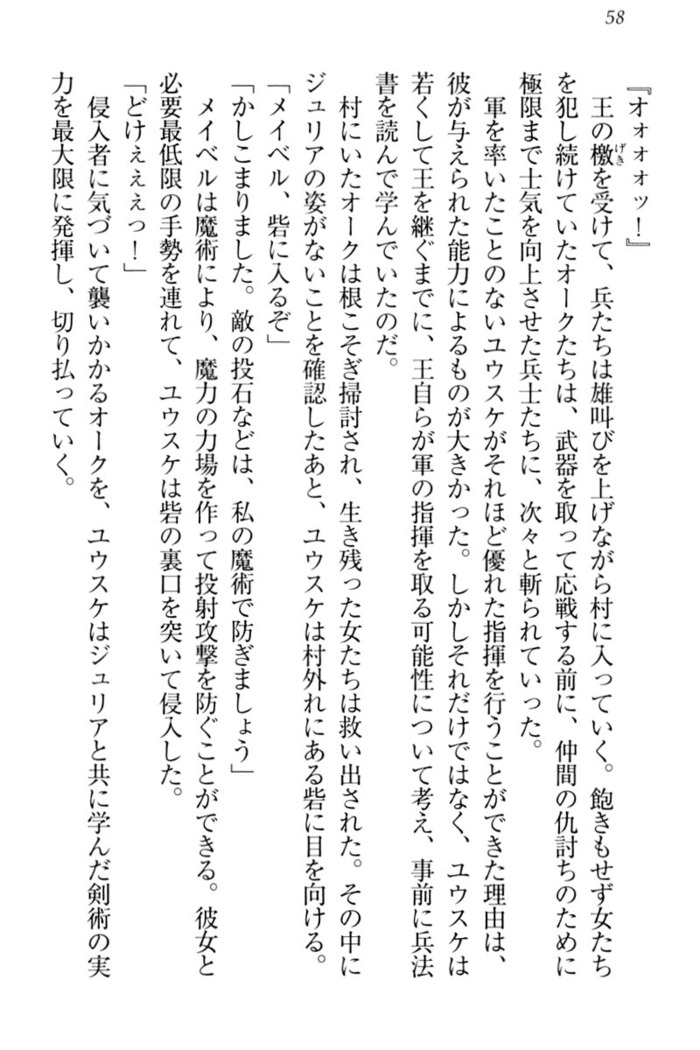 58
『オォォォッ！』
　王の檄を受けて、兵たちは雄叫びを上げながら村に入っていく。飽きもせず女たち
を犯し続けていたオークたちは、武器を取って応戦する前に、仲間の仇討ちのために
極限まで士気を向上させた兵士たちに、次々と斬られていった。
　軍を率いたことのないユウスケがそれほど優れた指揮を行うことができた理由は、
彼が与えられた能力によるものが大きかった。しかしそれだけではなく、ユウスケは
若くして王を継ぐまでに、王自らが軍の指揮を取る可能性について考え、事前に兵法
書を読んで学んでいたのだ。
　村にいたオークは根こそぎ掃討され、生き残った女たちは救い出された。その中に
ジュリアの姿がないことを確認したあと、ユウスケは村外れにある砦に目を向ける。
「メイベル、砦に入るぞ」
「かしこまりました。敵の投石などは、私の魔術で防ぎましょう」
　メイベルは魔術により、魔力の力場を作って投射攻撃を防ぐことができる。彼女と
必要最低限の手勢を連れて、ユウスケは砦の裏口を突いて侵入した。
「どけぇぇぇっ！」
　侵入者に気づいて襲いかかるオークを、ユウスケはジュリアと共に学んだ剣術の実
力を最大限に発揮し、切り払っていく。
げき